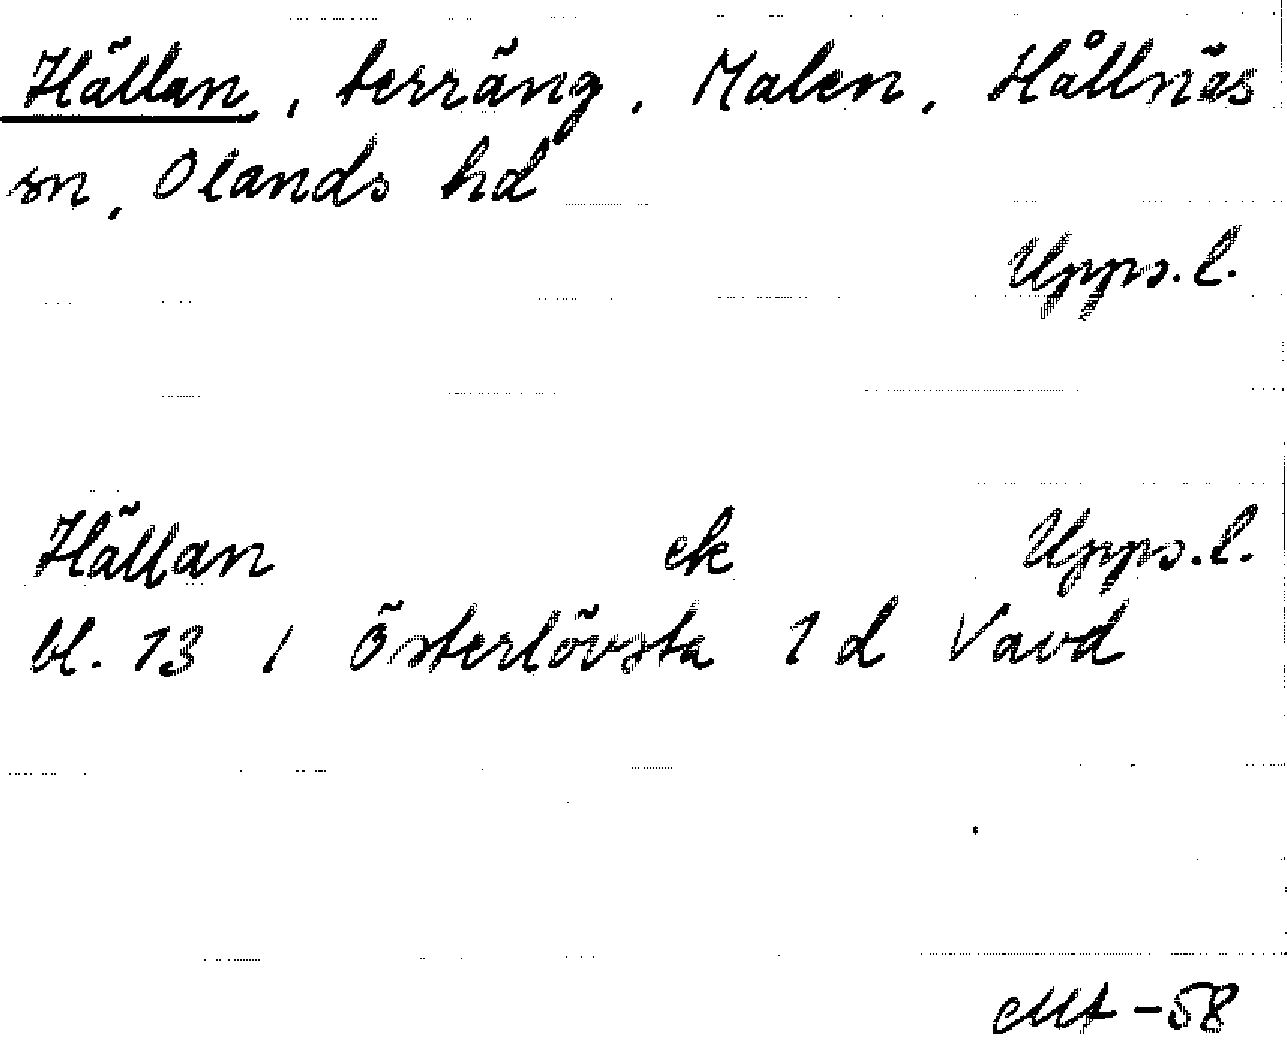 Hällan, terräng, Malen, Hållnäs
sn, Olands hd
Upps.l.
Hällan ek Upps.l.
bl. 13 / Österlövsta 1 d Vavd
-58